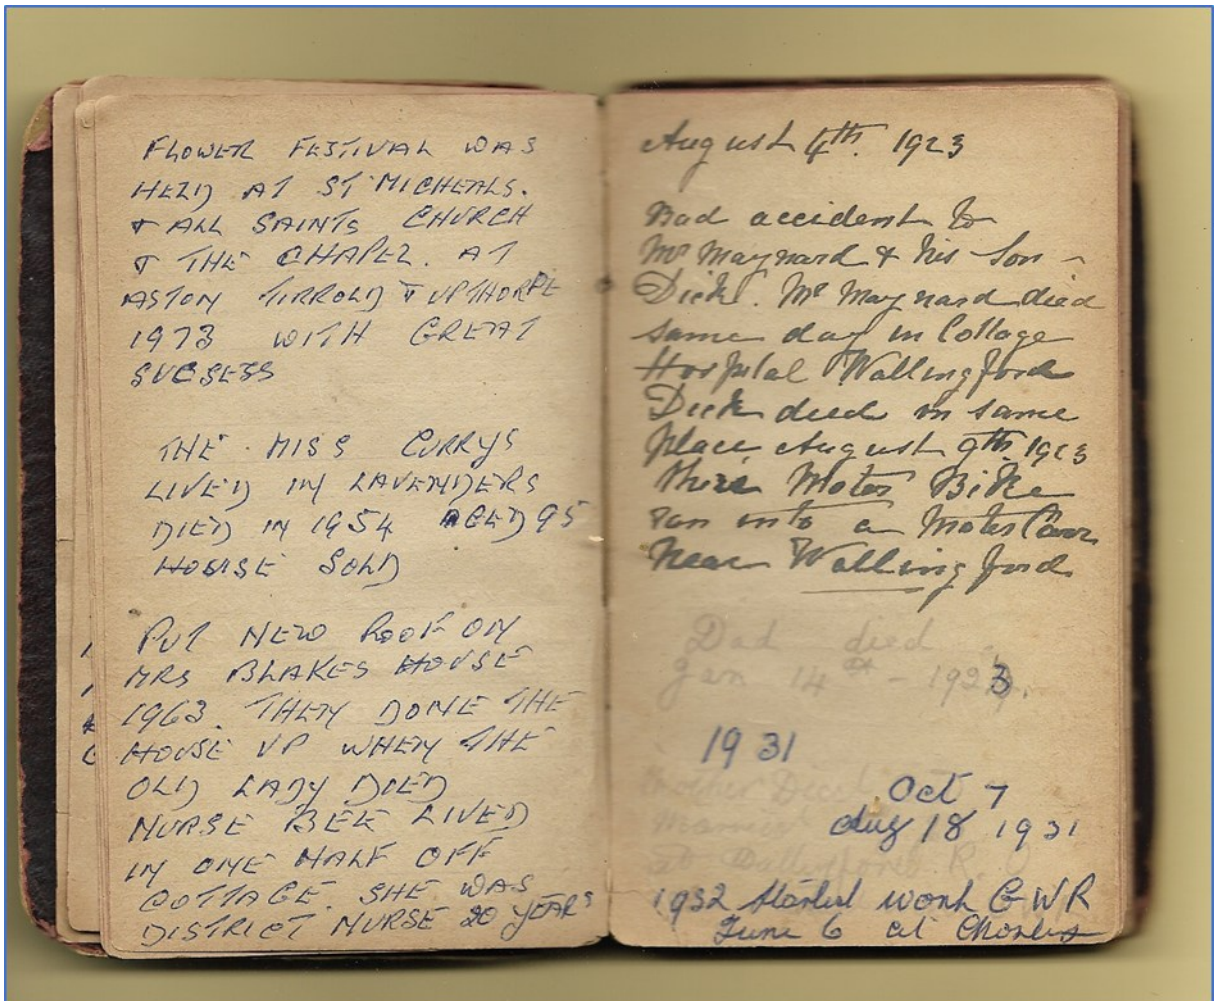 FLOWER FESTIVAL WAS
HELD AT ST MICHEALS.
& ALL SAINTS CHURCH
& THE CHAPEL. AT
ASTON TIRROLD & UPTHORPE
1973 WITH GREAT
SUCSESS
THE MISS CURRYS
LIVED IN LAVENDERS
DIED IN 1954 AGED 95
HOUSE SOLD
PUT NEW ROOF ON
MRS BLAKES HOUSE
1963. THEY DONE THE
HOUSE UP WHEN THE
OLD LADY DIED
NURSE BEE LIVED
IN ONE HALF OFF
COTTAGE. SHE WAS
DISTRICT NURSE 20 YEARS
August 4th. 1923
Bad accident to
Mr Maynard & his Son -
Dick. Mr Maynard died
same day in Cottage
Hospital Wallingford
Dick died in same
place August 9th 1923
there Motor Bike
ran into a Motor Carr
Near Wallingford
Dad died
Jan 14th - 1923.
1931
Mother Died Oct 7
Aug 18 1931
R. O
1932 Started work G W R
June 6 at Cholsey